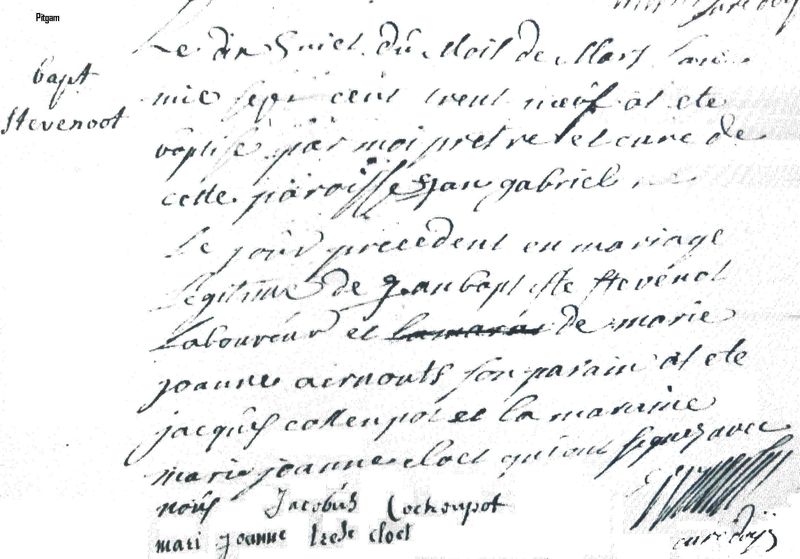 Pitgam
bapt
Stevenoot
Le dix huict du Mois de Mars l'an
mil sept cent trent neuf at ete
baptisé par moi pretre et curé de
cette paroisse jean gabriel né
Le jour precedent en mariage
Legitime de jean baptiste Stevenot
Laboureur et de marie
joanne aernouts son parain at ete
jacques cottenpot et la maraine
marie joanne cloet qui ont signez avec
nous Jacobus Cochenpot
mari joanne trese cloet
curé